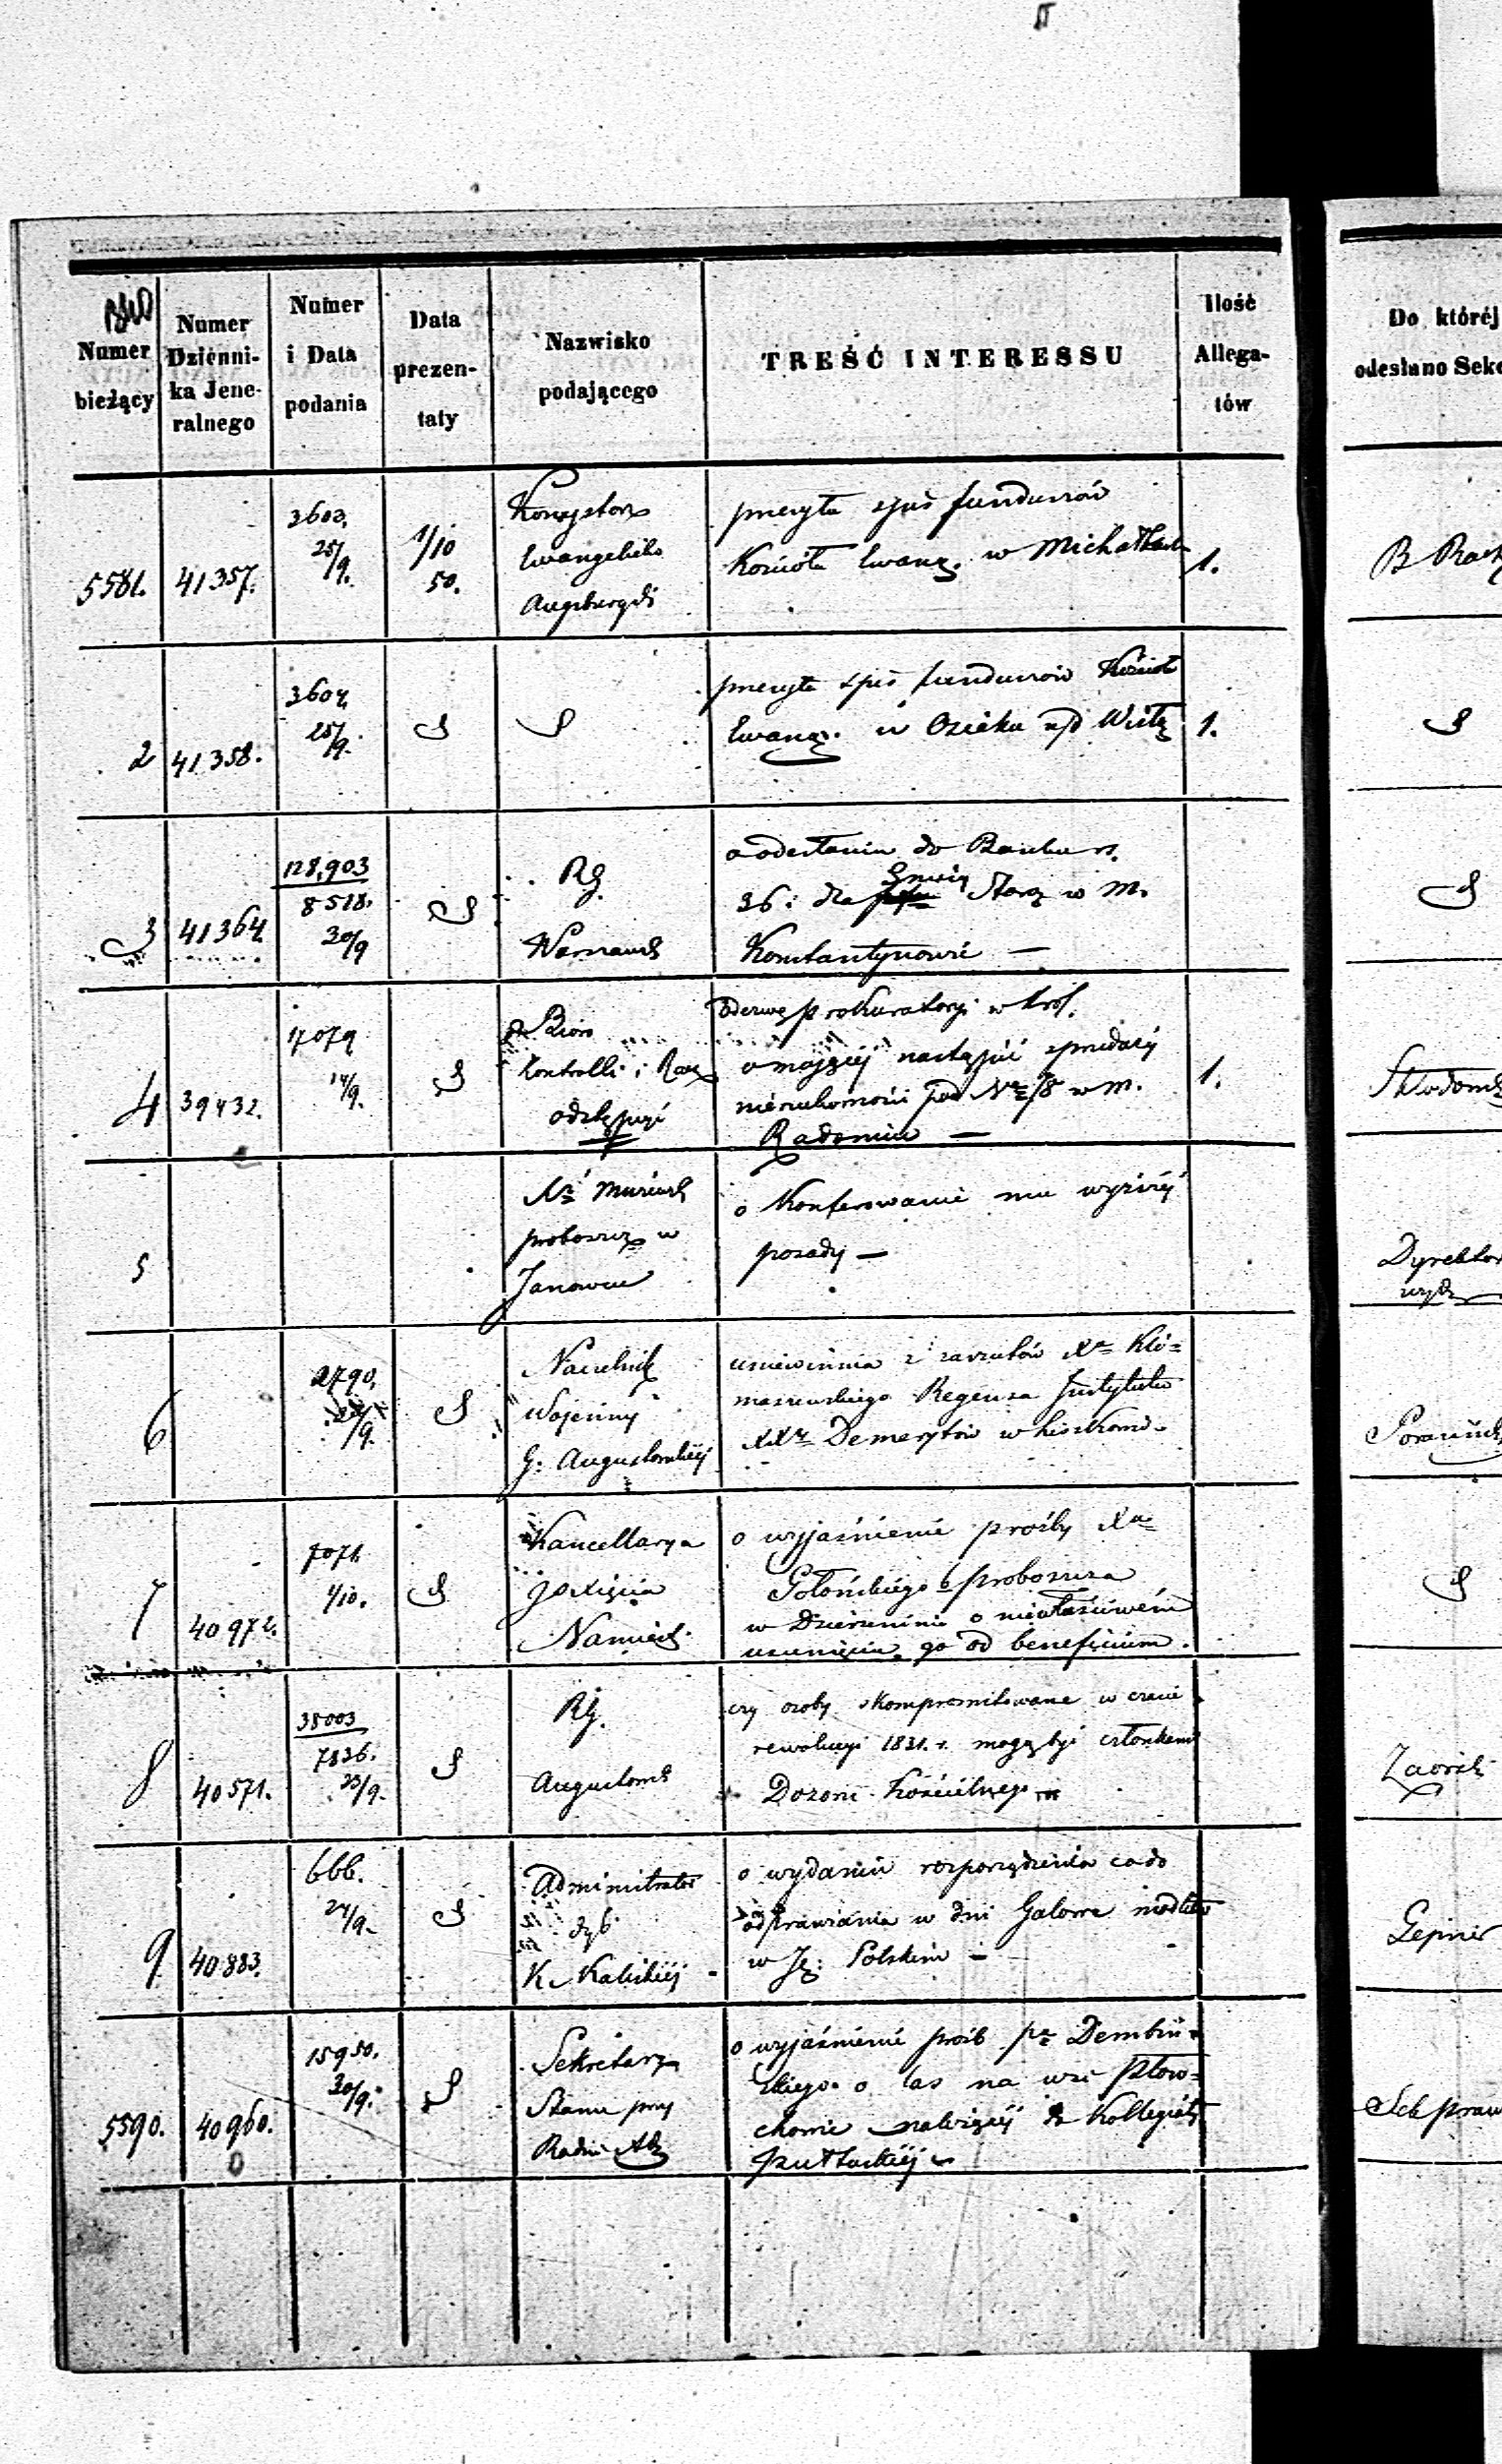 Numer
bieżący
Numer
Dzienni-
ka Jene-
ralnego
Numer
i Data
podania
Data
prezen-
taty
Nazwisko
podającego
TREŚĆ INTERESSU
Ilość
Allega-
tów
Do któréj
odesłano Sekc
5581.
41357.
3603.
25/9.
1/10
50.
Konsystorz
Ewangelicko
Augsburgski
przesyła spis funduszów
Kościoła Ewang. w Michałkach
1.
2
41358.
3604.
25/9.
przesyła spis funduszów Kościoła
Ewang. w Osieku n/d Wisłą
1.
3
41364.
128,903
8518.
30/9
RG.
Warszawsk
o odesłaniu do Banku rs.
36: dla Gminy Starz w m.
Konstantynowie —
4
39432.
17079
14/9.
Kontrolli i Rach
odstępuje
odezwę prokuratoryi w król.
o mającéj nastąpić sprzedaży
nieruchomości pod Nr 78 w m.
Radomiu —
1.
5
proboszcz w
Janowcu
o konferowanie mu wyższéj
posady —
Dyrektor
6
2790.
/9.
Naczelnik
Wojenny
G. Augustowskiéj
uniewinnia z zarzutów Xa Kli=
maszewskiego Regensa Instytutu
XXy Demerytów w Liszkowie
7
40972.
7071.
1/10.
Kancellarya
JO Xięcia
Namiest.
o wyjaśnienie prośby Xa
Gołońskiego b proboszcza
w o niewłaściwém
usunięciu go od beneficium.
8
40571.
38003
7836.
23/9.
RG.
Augustowsk
czy osoby skompromitowane w czasie
rewolucyi 1831. r. mogą być członkami
Dozoru Kościelnego
9
40883.
666.
24/9.
Administrator
dyć
K. Kaliskiéj
o wydanie rozporządzenia co do
odprawiania w dni Galowe modłów
w Ję: Polskim —
5590.
40960.
15950.
30/9.
Sekretarz
Stanu przy
Radzie Ad
o wyjaśnienie prośb pa Dembiń-
skiego o las na wsi Płow=
chowie należącéj do Kollegiaty
Pułtuskiéj